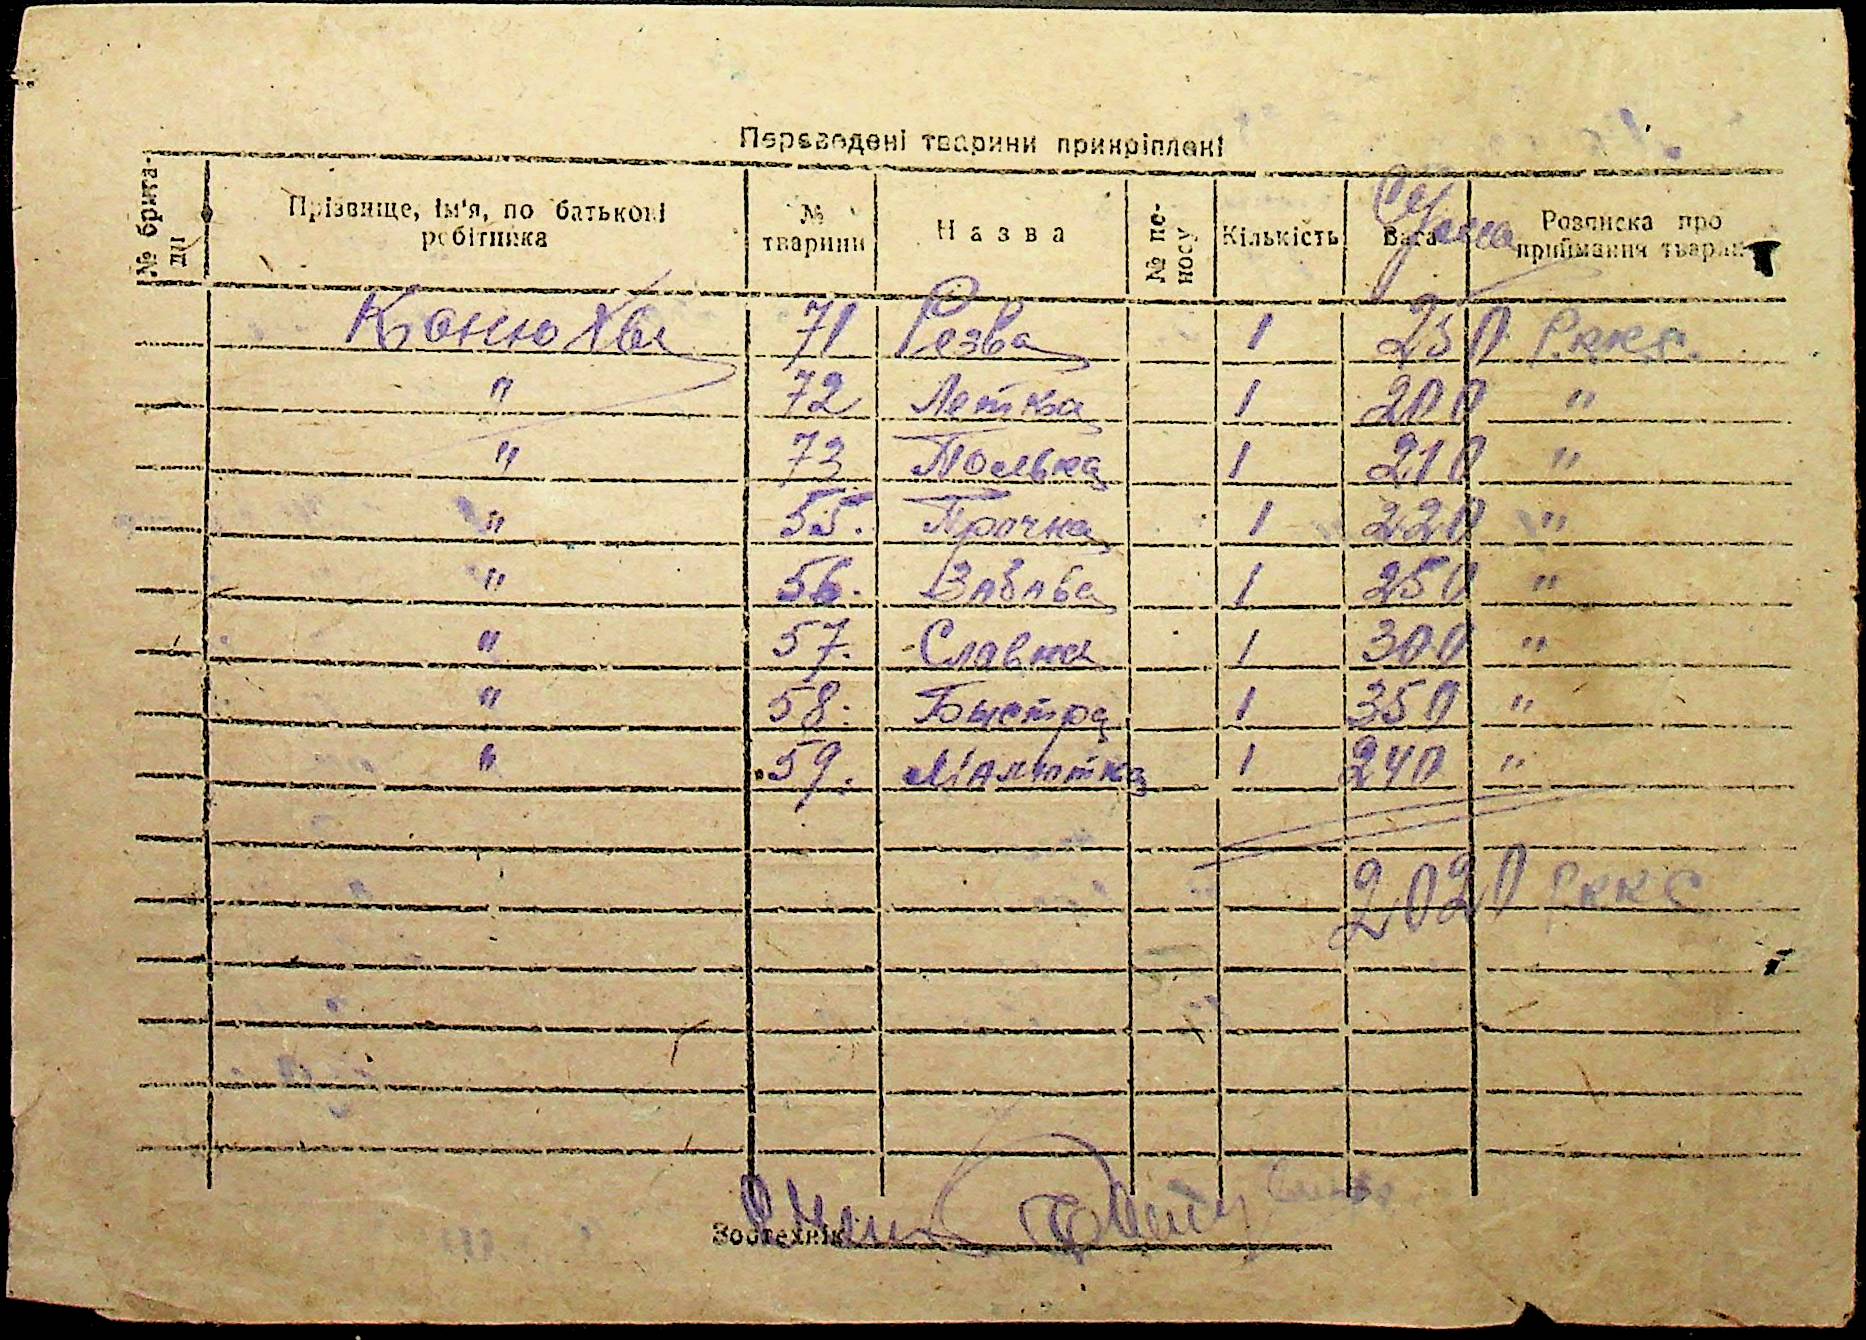 Переведені тварини прикріплені
№ бригади Прізвище, ім'я, по батькові робітника № тварини Назва № поносу Кількість Вага Сума Розписка про приймання тварин
Конюхи 71 Резва 1 250
" 72 Летка 1 200 "
" 73 Полька 1 210 "
" 55. Прочна 1 220 "
" 56. Забава 1 250 "
" 57. Славна 1 300 "
" 58. Быстра 1 350 "
" 59. Малютка 1 240 "
2020
Зоотехнік